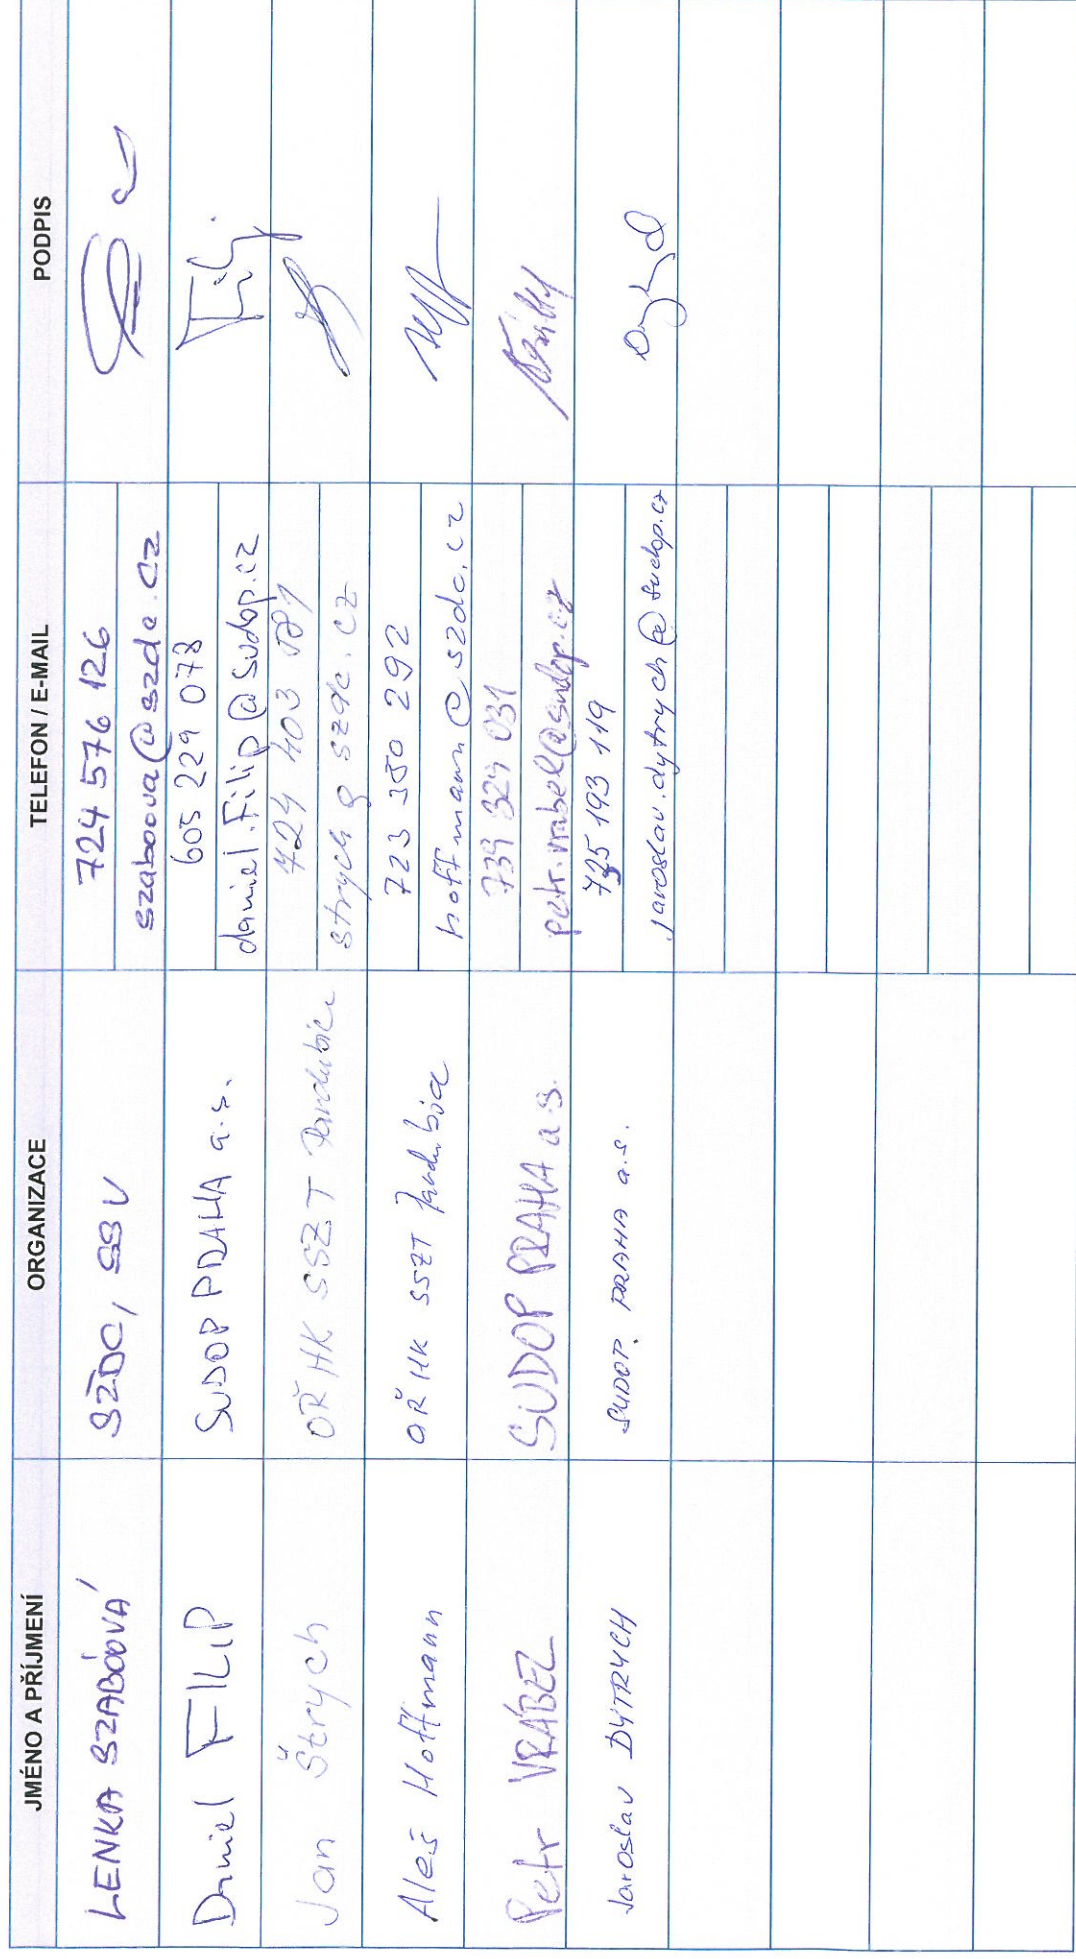 JMÉNO A PŘÍJMENÍ ORGANIZACE TELEFON / E-MAIL PODPIS
LENKA SZABÓOVÁ SŽDC, SSV 724 576 126
szaboova@szdc.cz
Daniel FILIP SUDOP PRAHA a.s. 605 229 078
daniel.filip@sudop.cz
Jan Štrych OŘ HK SSZT Pardubice 724 403
strych@szdc.cz
Aleš Hoffmann OŘ HK SSZT Pardubice 723 380 292
hoffmann@szdc.cz
Petr VRÁBEL SUDOP PRAHA a.s. 739 324 031
petr.vrabel@sudop.cz
Jaroslav DYTRYCH SUDOP PRAHA a.s. 725 193 119
jaroslav.dytrych@sudop.cz